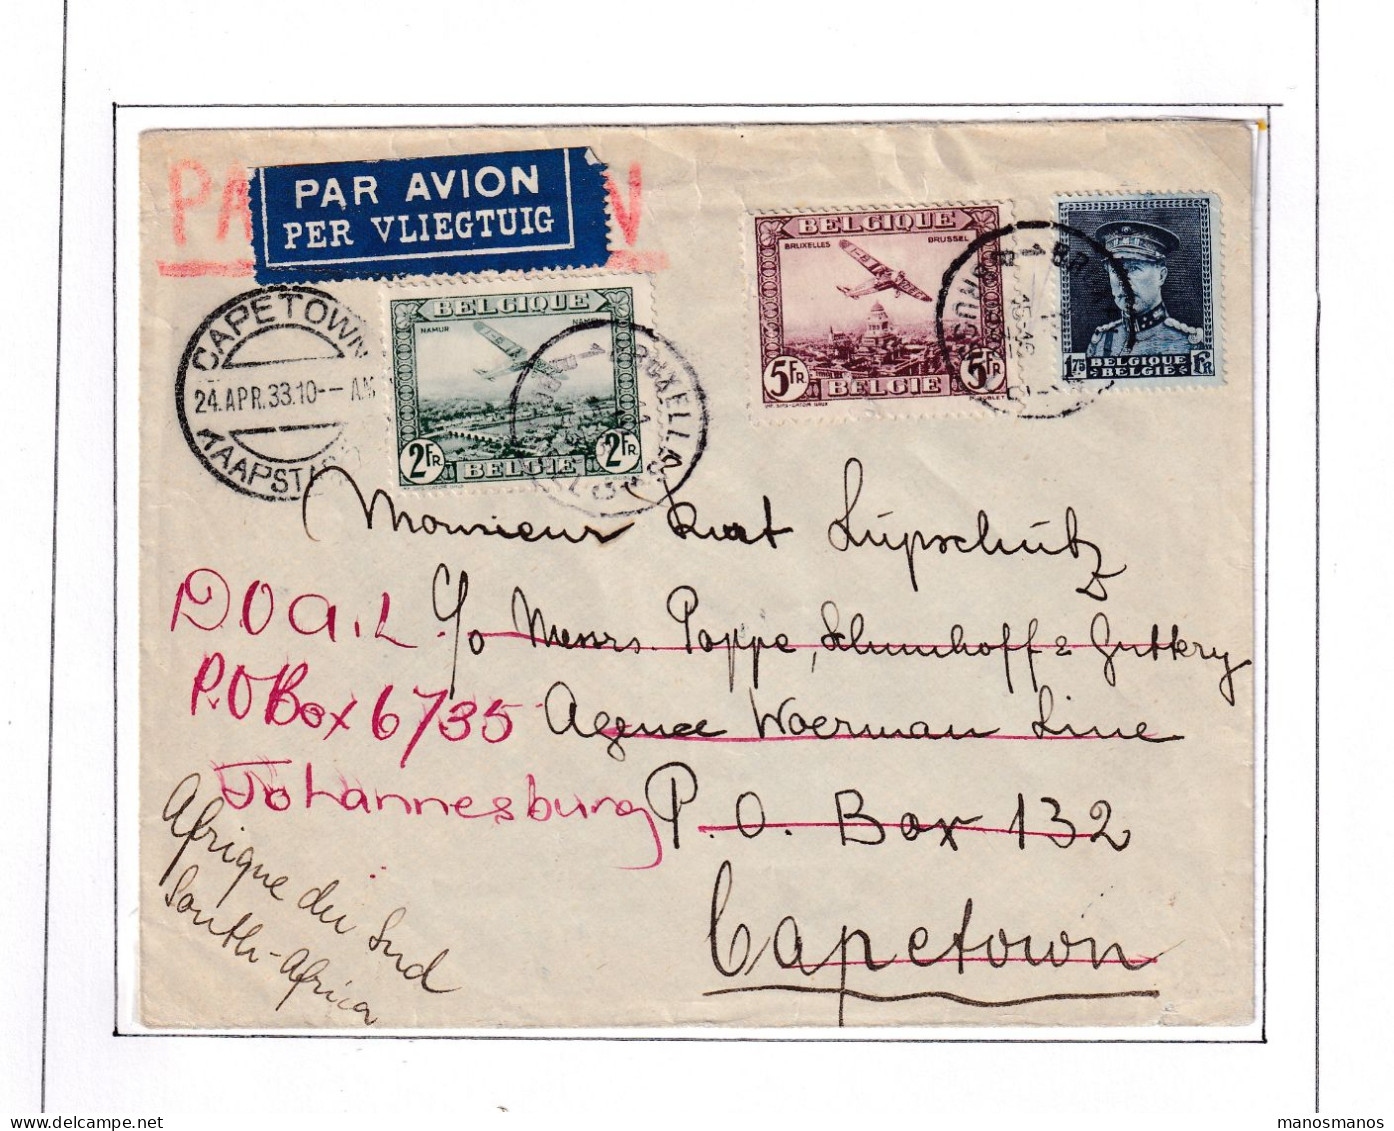 PAR AVION
PER VLIEGTUIG
CAPETOWN
24.APR.33.10-- AM
KAAPSTAD
BELGIQUE
NAMUR
2 FR 2 FR
BELGIE
BELGIQUE
BRUXELLES BRUSSEL
5 FR 5 FR
BELGIE
1.75 BELGIQUE Fr
BELGIE
Monsieur Kurt Lüpschütz
D.O.A.L. c/o Messrs. Poppe, Schunhoff & Guttery
P.O Box 6735 Agence Woerman Line
Johannesburg P.O. Box 132
Capetown
Afrique du Sud
South-Africa
manosmanos